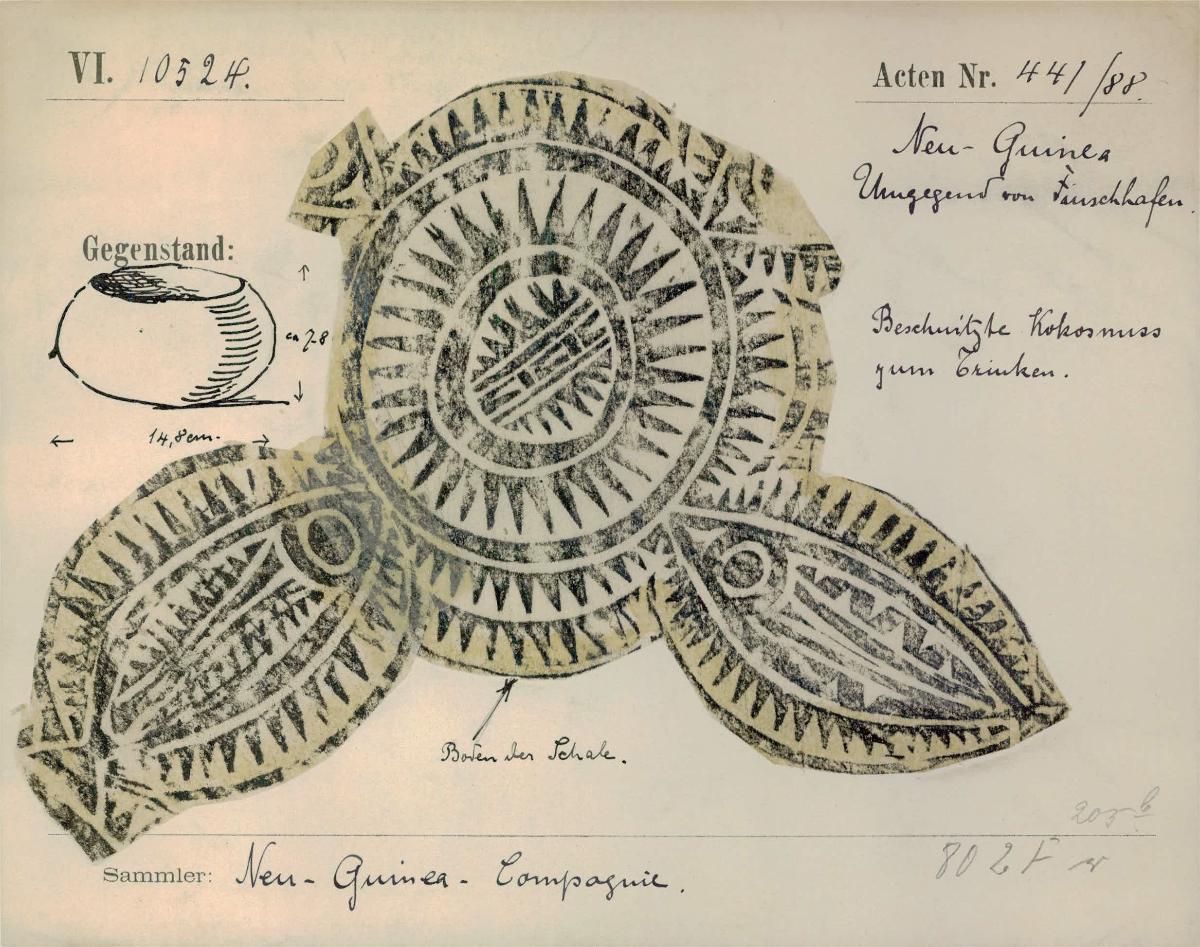 VI. 10524.
Acten Nr. 441/88.
Neu-Guinea
Umgegend von Finschhafen.
Gegenstand:
ca 7-8
14,8 cm.
Beschnitzte Kokosnuss
zum Trinken.
Boden der Schale.
Sammler: Neu-Guinea-Compagnie.